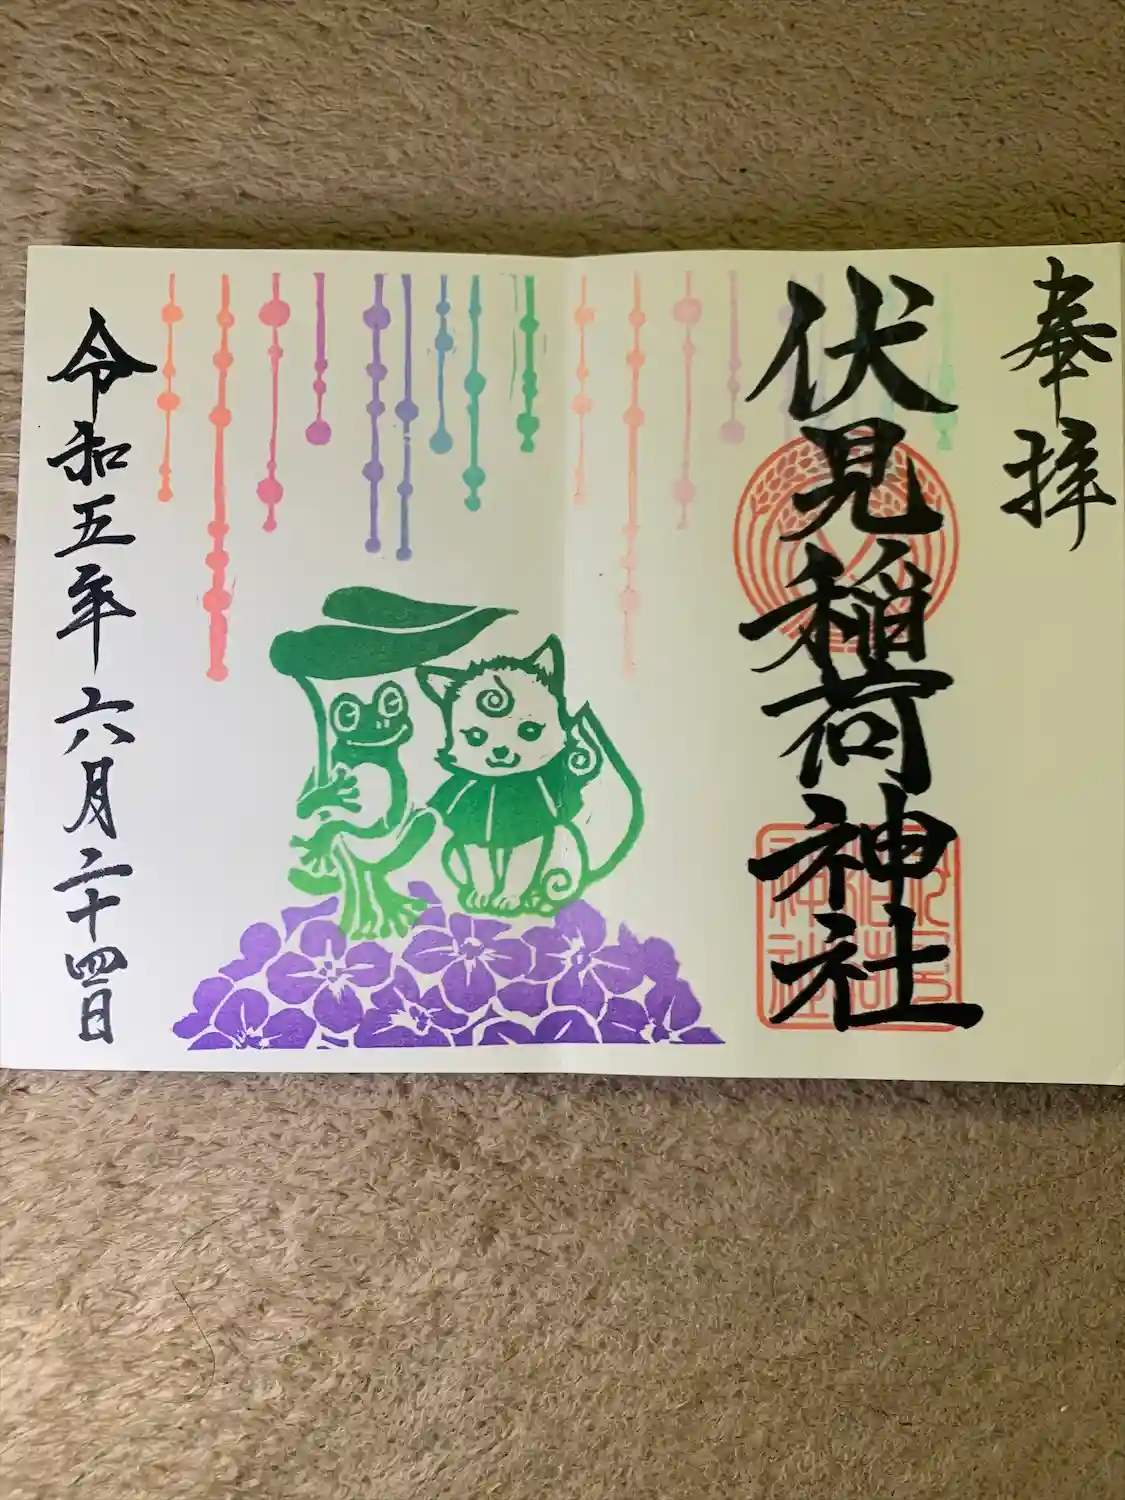 奉拝
伏見稲荷神社
令和五年六月二十四日